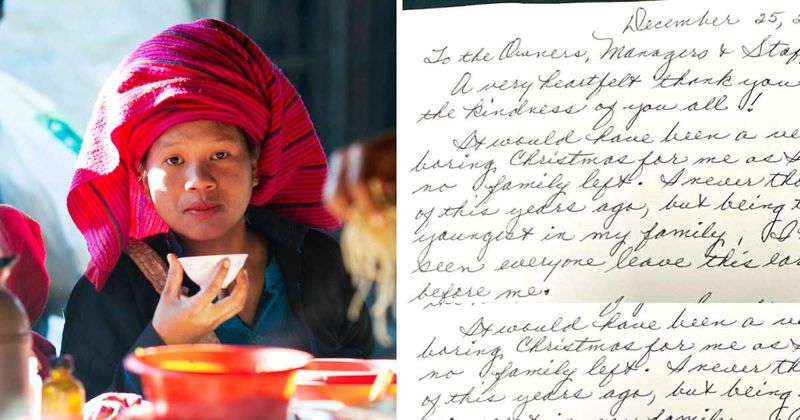 December 25, 2
To the Owners, Managers & Staf
A very heartfelt thank you
the kindness of you all!
It would have been a ve
boring Christmas for me as I
no family left. I never tho
of this years ago, but being t
youngest in my family, I
seen everyone leave this ear
before me.
It would have been a ve
boring Christmas for me as I
no family left. I never tho
of this years ago, but being